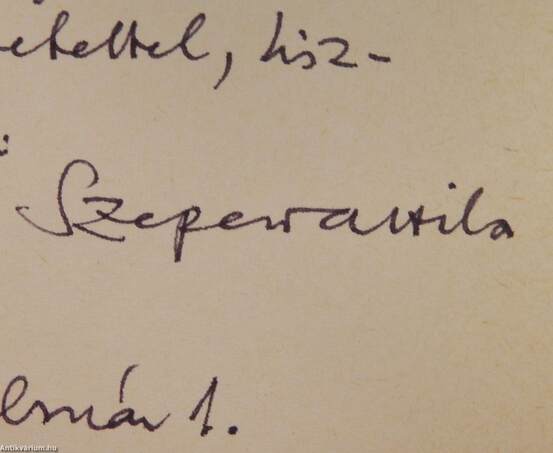 etettel, tisz-
:
Szepesi Attila
bruár 1.
Antikvarium.hu